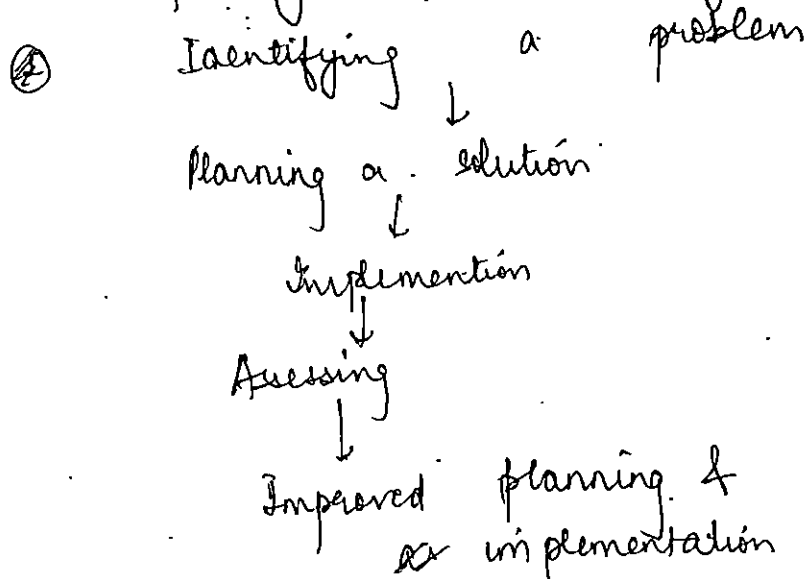 Identifying a problem
↓
Planning a solution
↓
Implemention
↓
Assessing
↓
Improved planning &
implementation